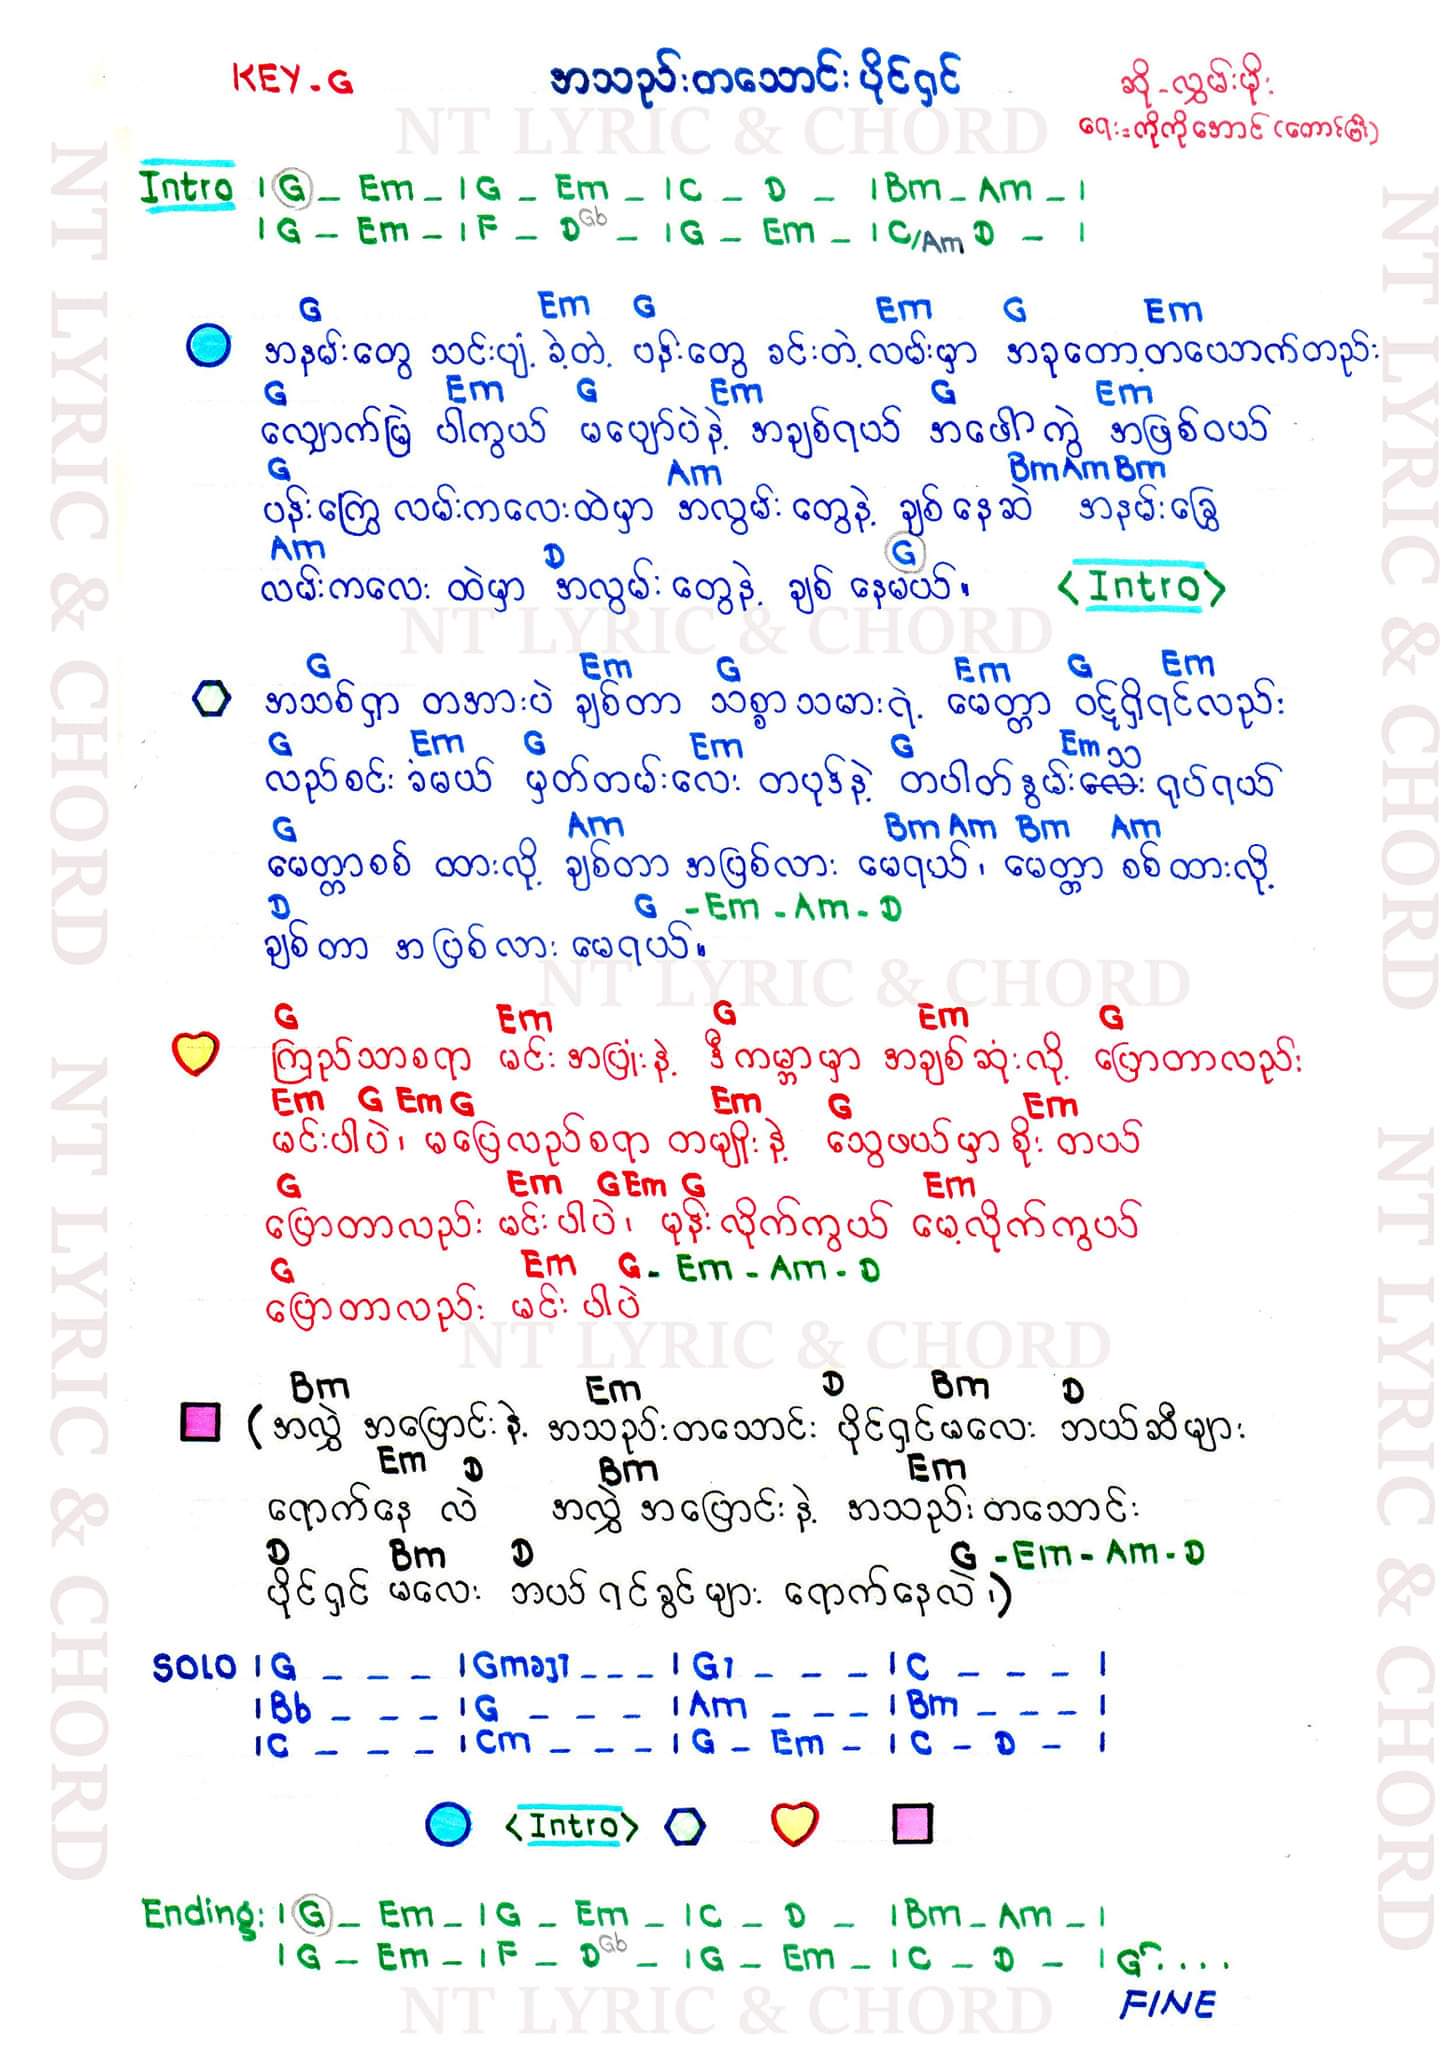 KEY-G
အသည်းတသောင်းပိုင်ရှင်
ဆို-လွှမ်းမိုး
ရေး=ကိုကိုအောင်(တောင်ကြီး)
NT LYRIC & CHORD
Intro |G - Em - |G - Em - |C - D - |Bm - Am - |
|G - Em - |F - D Gb - |G - Em - |C/Am D - |
G Em G Em G Em
အနမ်းတွေ သင်းပျံ့ခဲ့တဲ့ ပန်းတွေ ခင်းတဲ့လမ်းမှာ အခုတော့တယောက်တည်း
G Em G Em G Em
လျှောက်မြဲ ပါကွယ် မပျော်ပဲနဲ့ အချစ်ရယ် အဖေါ်ကွဲ အဖြစ်ဝယ်
G Am Bm Am Bm
ပန်းကြွေ လမ်းကလေးထဲမှာ အလွမ်းတွေနဲ့ ချစ်နေဆဲ အနမ်းခြွေ
Am D G
လမ်းကလေး ထဲမှာ အလွမ်းတွေနဲ့ ချစ်နေမယ်။ <Intro>
NT LYRIC & CHORD
G Em G Em G Em
အသစ်ရှာ တအားပဲ ချစ်တာ သစ္စာသမားရဲ့ မေတ္တာ ဝဋ်ရှိရင်လည်း
G Em G Em G Em သ
လည်စင်း ခံမယ် မှတ်တမ်းလေး တပုဒ်နဲ့ တပါတ်နွမ်းလေး ရုပ်ရယ်
G Am Bm Am Bm Am
မေတ္တာစစ် ထားလို့ ချစ်တာ အပြစ်လား မေရယ်၊ မေတ္တာ စစ်ထားလို့
D G - Em - Am - D
ချစ်တာ အပြစ်လား မေရယ်။
NT LYRIC & CHORD
G Em G Em G
ကြည်သာစရာ မင်းအပြုံးနဲ့ ဒီကမ္ဘာမှာ အချစ်ဆုံးလို့ ပြောတာလည်း
Em G Em G Em G Em
မင်းပါပဲ၊ မပြေလည်စရာ တမျိုးနဲ့ သွေဖယ်မှာစိုး တယ်
G Em G Em G Em
ပြောတာလည်း မင်းပါပဲ၊ မုန်းလိုက်ကွယ် မေ့လိုက်ကွယ်
G Em G - Em - Am - D
ပြောတာလည်း မင်းပါပဲ
NT LYRIC & CHORD
Bm Em D Bm D
(အလွှဲ အပြောင်းနဲ့ အသည်းတသောင်း ပိုင်ရှင်မလေး ဘယ်ဆီများ
Em D Bm Em
ရောက်နေ လဲ အလွှဲအပြောင်းနဲ့ အသည်းတသောင်း
D Bm D G - Em - Am - D
ပိုင်ရှင် မလေး ဘယ်ရင်ခွင်များ ရောက်နေလဲ၊)
SOLO |G - - - |Gmaj7 - - - |G7 - - - |C - - - |
|Bb - - - |G - - - |Am - - - |Bm - - - |
|C - - - |Cm - - - |G - Em - |C - D - |
<Intro>
Ending: |G - Em - |G - Em - |C - D - |Bm - Am - |
|G - Em - |F - D Gb - |G - Em - |C - D - |G....
FINE
NT LYRIC & CHORD
NT LYRIC & CHORD
NT LYRIC & CHORD
NT LYRIC & CHORD
NT LYRIC & CHORD